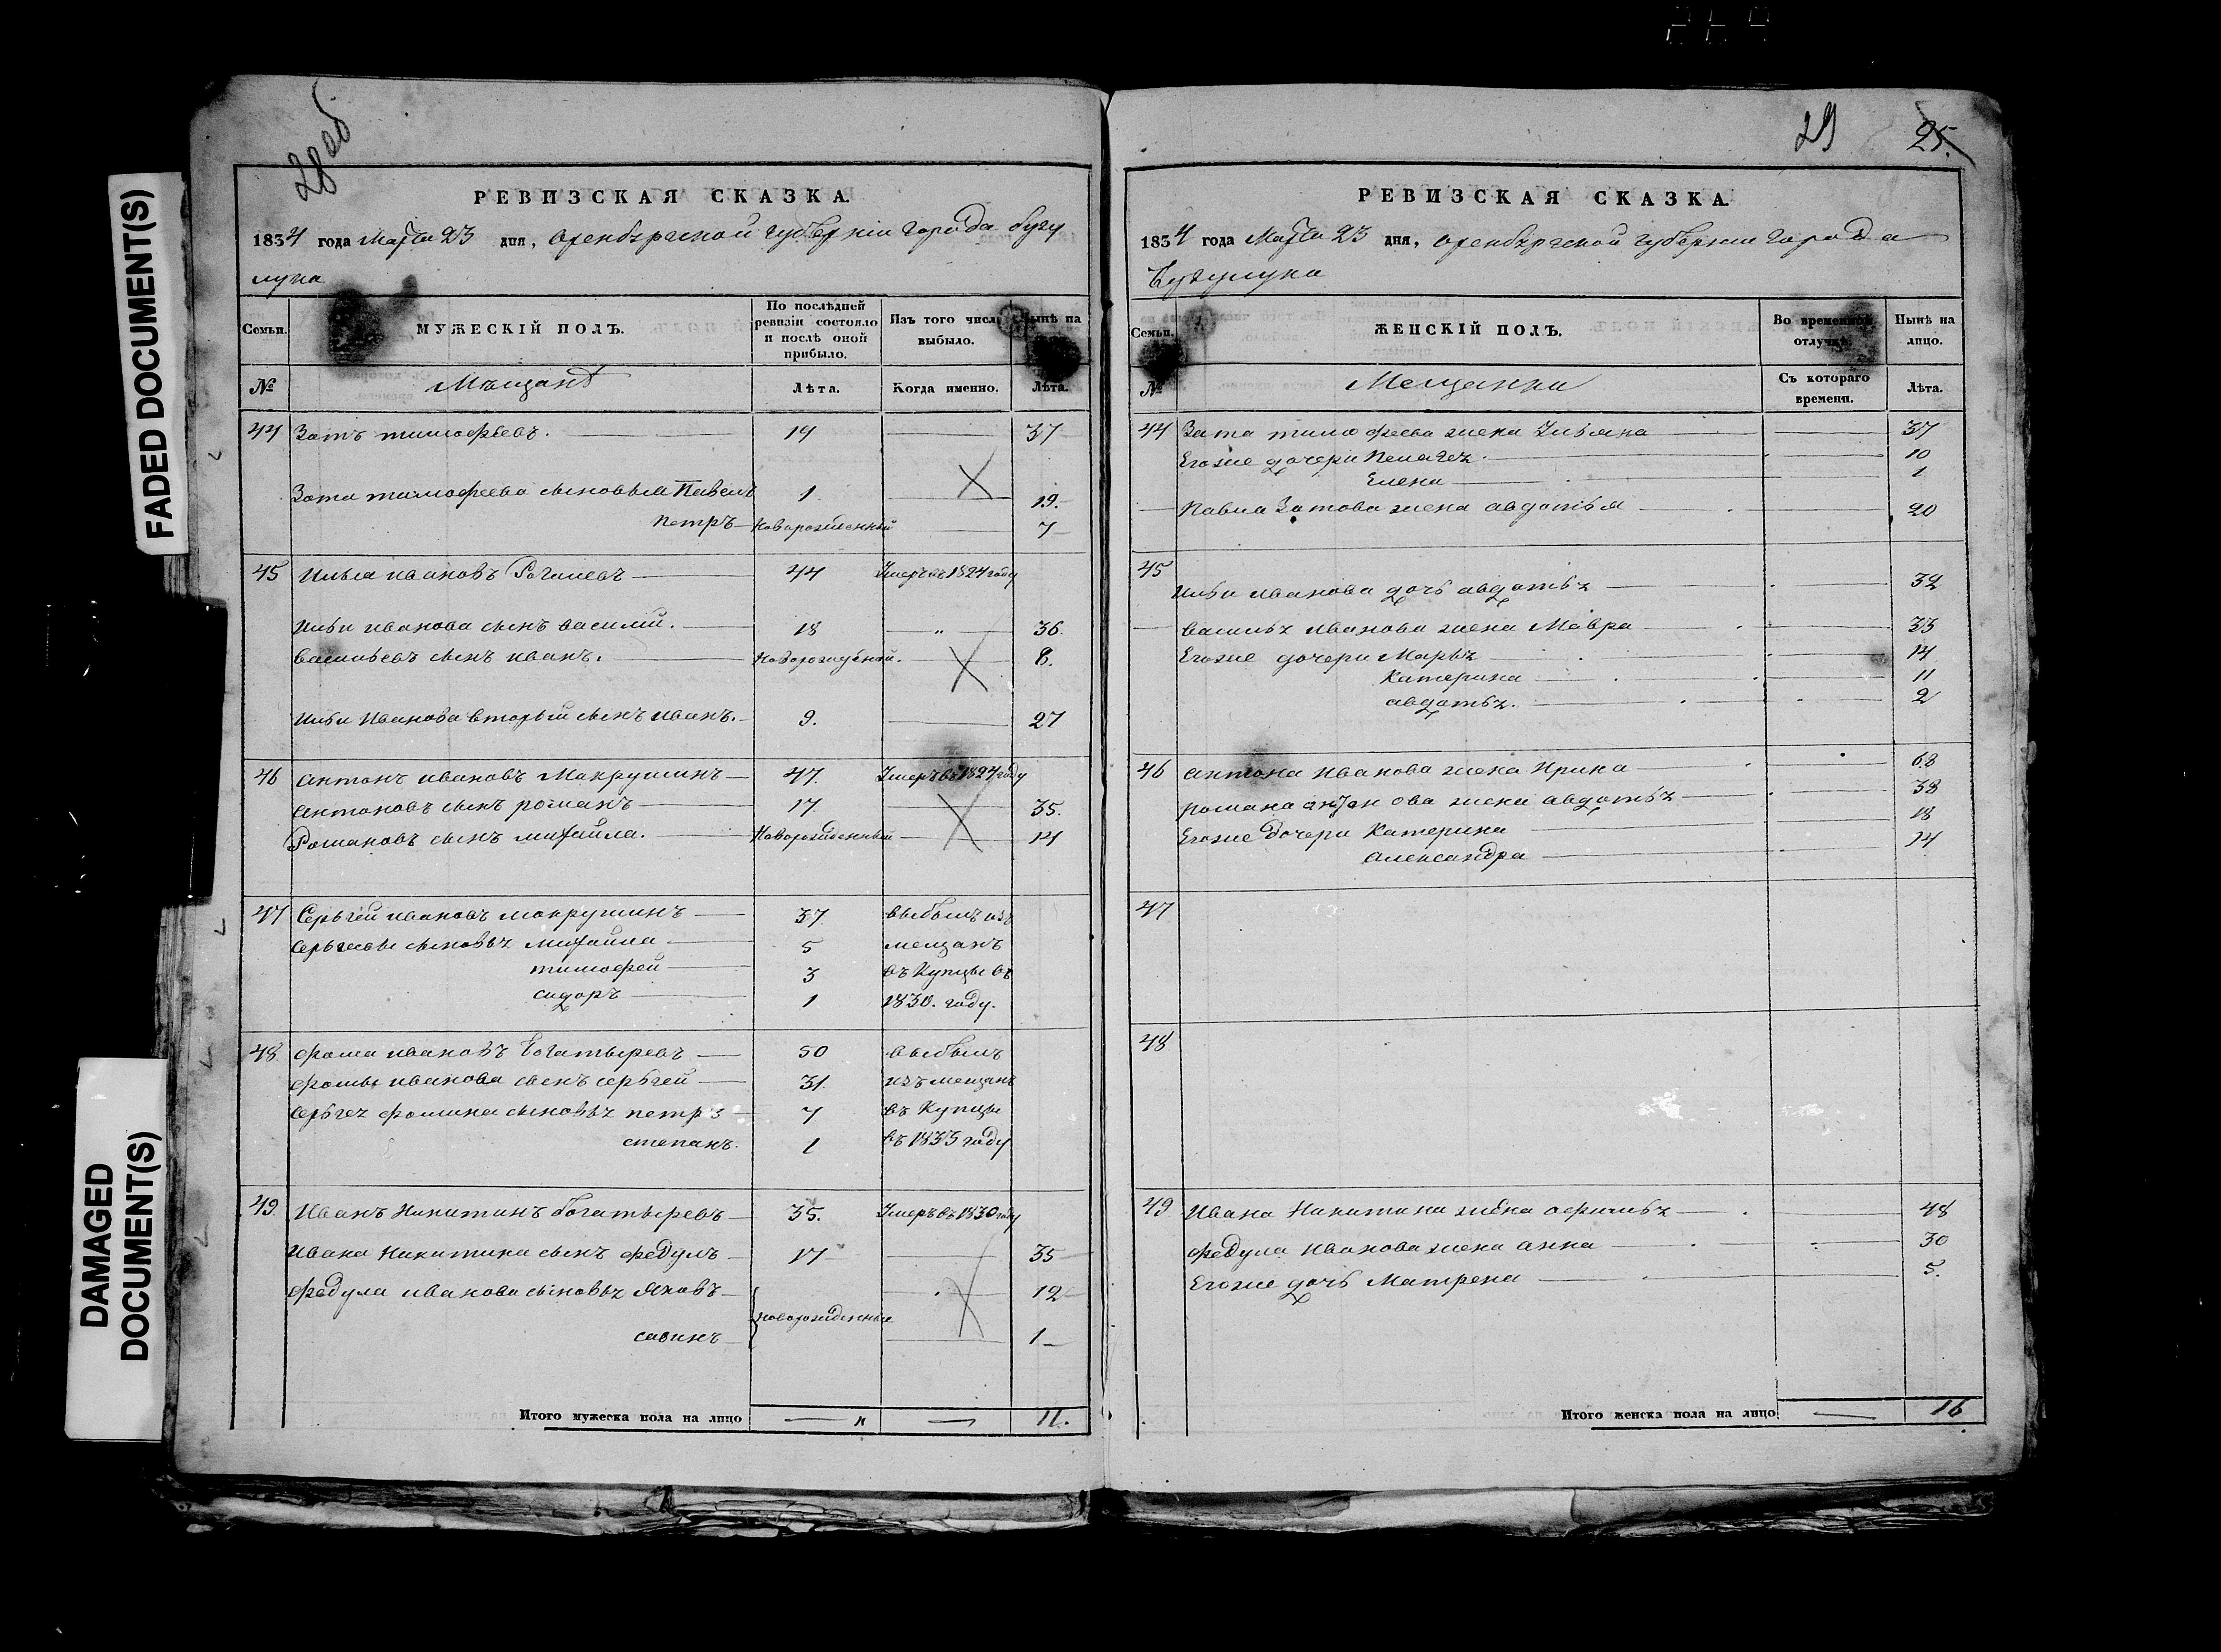 FADED DOCUMENT(S)
DAMAGED
DOCUMENT(S)
28 об
РЕВИЗСКАЯ СКАЗКА.
1834 года Марта 23 дня, оренбургской губерніи города бугу
луки
Семьи. МУЖЕСКІЙ ПОЛЪ. По послѣдней ревизіи состояло и послѣ оной прибыло. Изъ того числа выбыло. Нынѣ на
№ Мѣщанъ Лѣта. Когда именно. Лѣта.
44 Зотъ тимофѣевъ. 19 37
Зота тимофеева сыновья Павелъ 1 19.
петръ Новорожденный 7
45 Илья ивановъ Рогалевъ 44 Умеръ въ 1824 году
Ильи иванова сынъ василий. 18 36.
васильевъ сынъ иванъ. Новорожденой. 8.
Ильи Иванова вторый сынъ иванъ. 9. 27
46 антонъ ивановъ Мокрушинъ 47. Умеръ въ 1824 году
антоновъ сынъ романъ 17 35.
Романовъ сынъ михайла. Новорожденный 14
47 Серьгей ивановъ мокрушинъ 37. выбылъ изъ
серьгеевы сыновья михайла 5 мещанъ
тимофей 3 въ Купцы въ
сидоръ 1 1830. году.
48 фома ивановъ Богатыревъ 50 выбылъ
фомы иванова сынъ серьгей 31. изъ мещанъ
серьгея фомина сыновья петръ 7 въ Купцы
степанъ. 1 въ 1833 году
49 Иванъ Никитинъ богатыревъ 35. Умеръ въ 1830 году
Ивана Никитина сынъ федулъ 17 35
федула иванова сыновья Яковъ 12
новорожденные
савинъ 1
Итого мужеска пола на лицо 11.
29 25.
РЕВИЗСКАЯ СКАЗКА.
1834 года Марта 23 дня, оренбургской губернии города
Семьи. ЖЕНСКІЙ ПОЛЪ. Во временной отлучкѣ. Нынѣ на лицо.
№ Мещанки Съ котораго времени. Лѣта.
44 Зота тимофеева жена Ульяна 37
Егоже дочери Пелагея 10
Елена 1
Павла Зотова жена авдотья 20
45
Ильи иванова дочь авдотья 32
василья иванова жена Мавра 33
Егоже дочери Марья 14
Катерина 11
авдотья. 2
46 антона Иванова жена Ирина 68
романа антонова жена авдотья 38
Егоже дочери Катерина 18
александра 14
47
48
49 Ивана Никитина жена 48
федула Иванова жена анна 30
Егоже дочь Матрена 5.
Итого женска пола на лицо 16